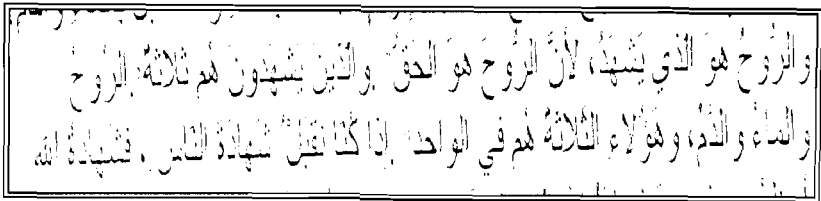 والرُّوحُ هوَ الَّذي يَشهَدُ، لأنَّ الرُّوحَ هوَ الحَقُّ. والَّذينَ يَشهَدونَ هُم ثلاثَةٌ: الرُّوحُ
والماءُ والدَّمُ، وهَؤُلاءِ الثَّلاثَةُ هُم في الواحدِ. إذا كُنَّا نَقبَلُ شَهادَةَ النَّاسِ، فشَهادَةُ الله